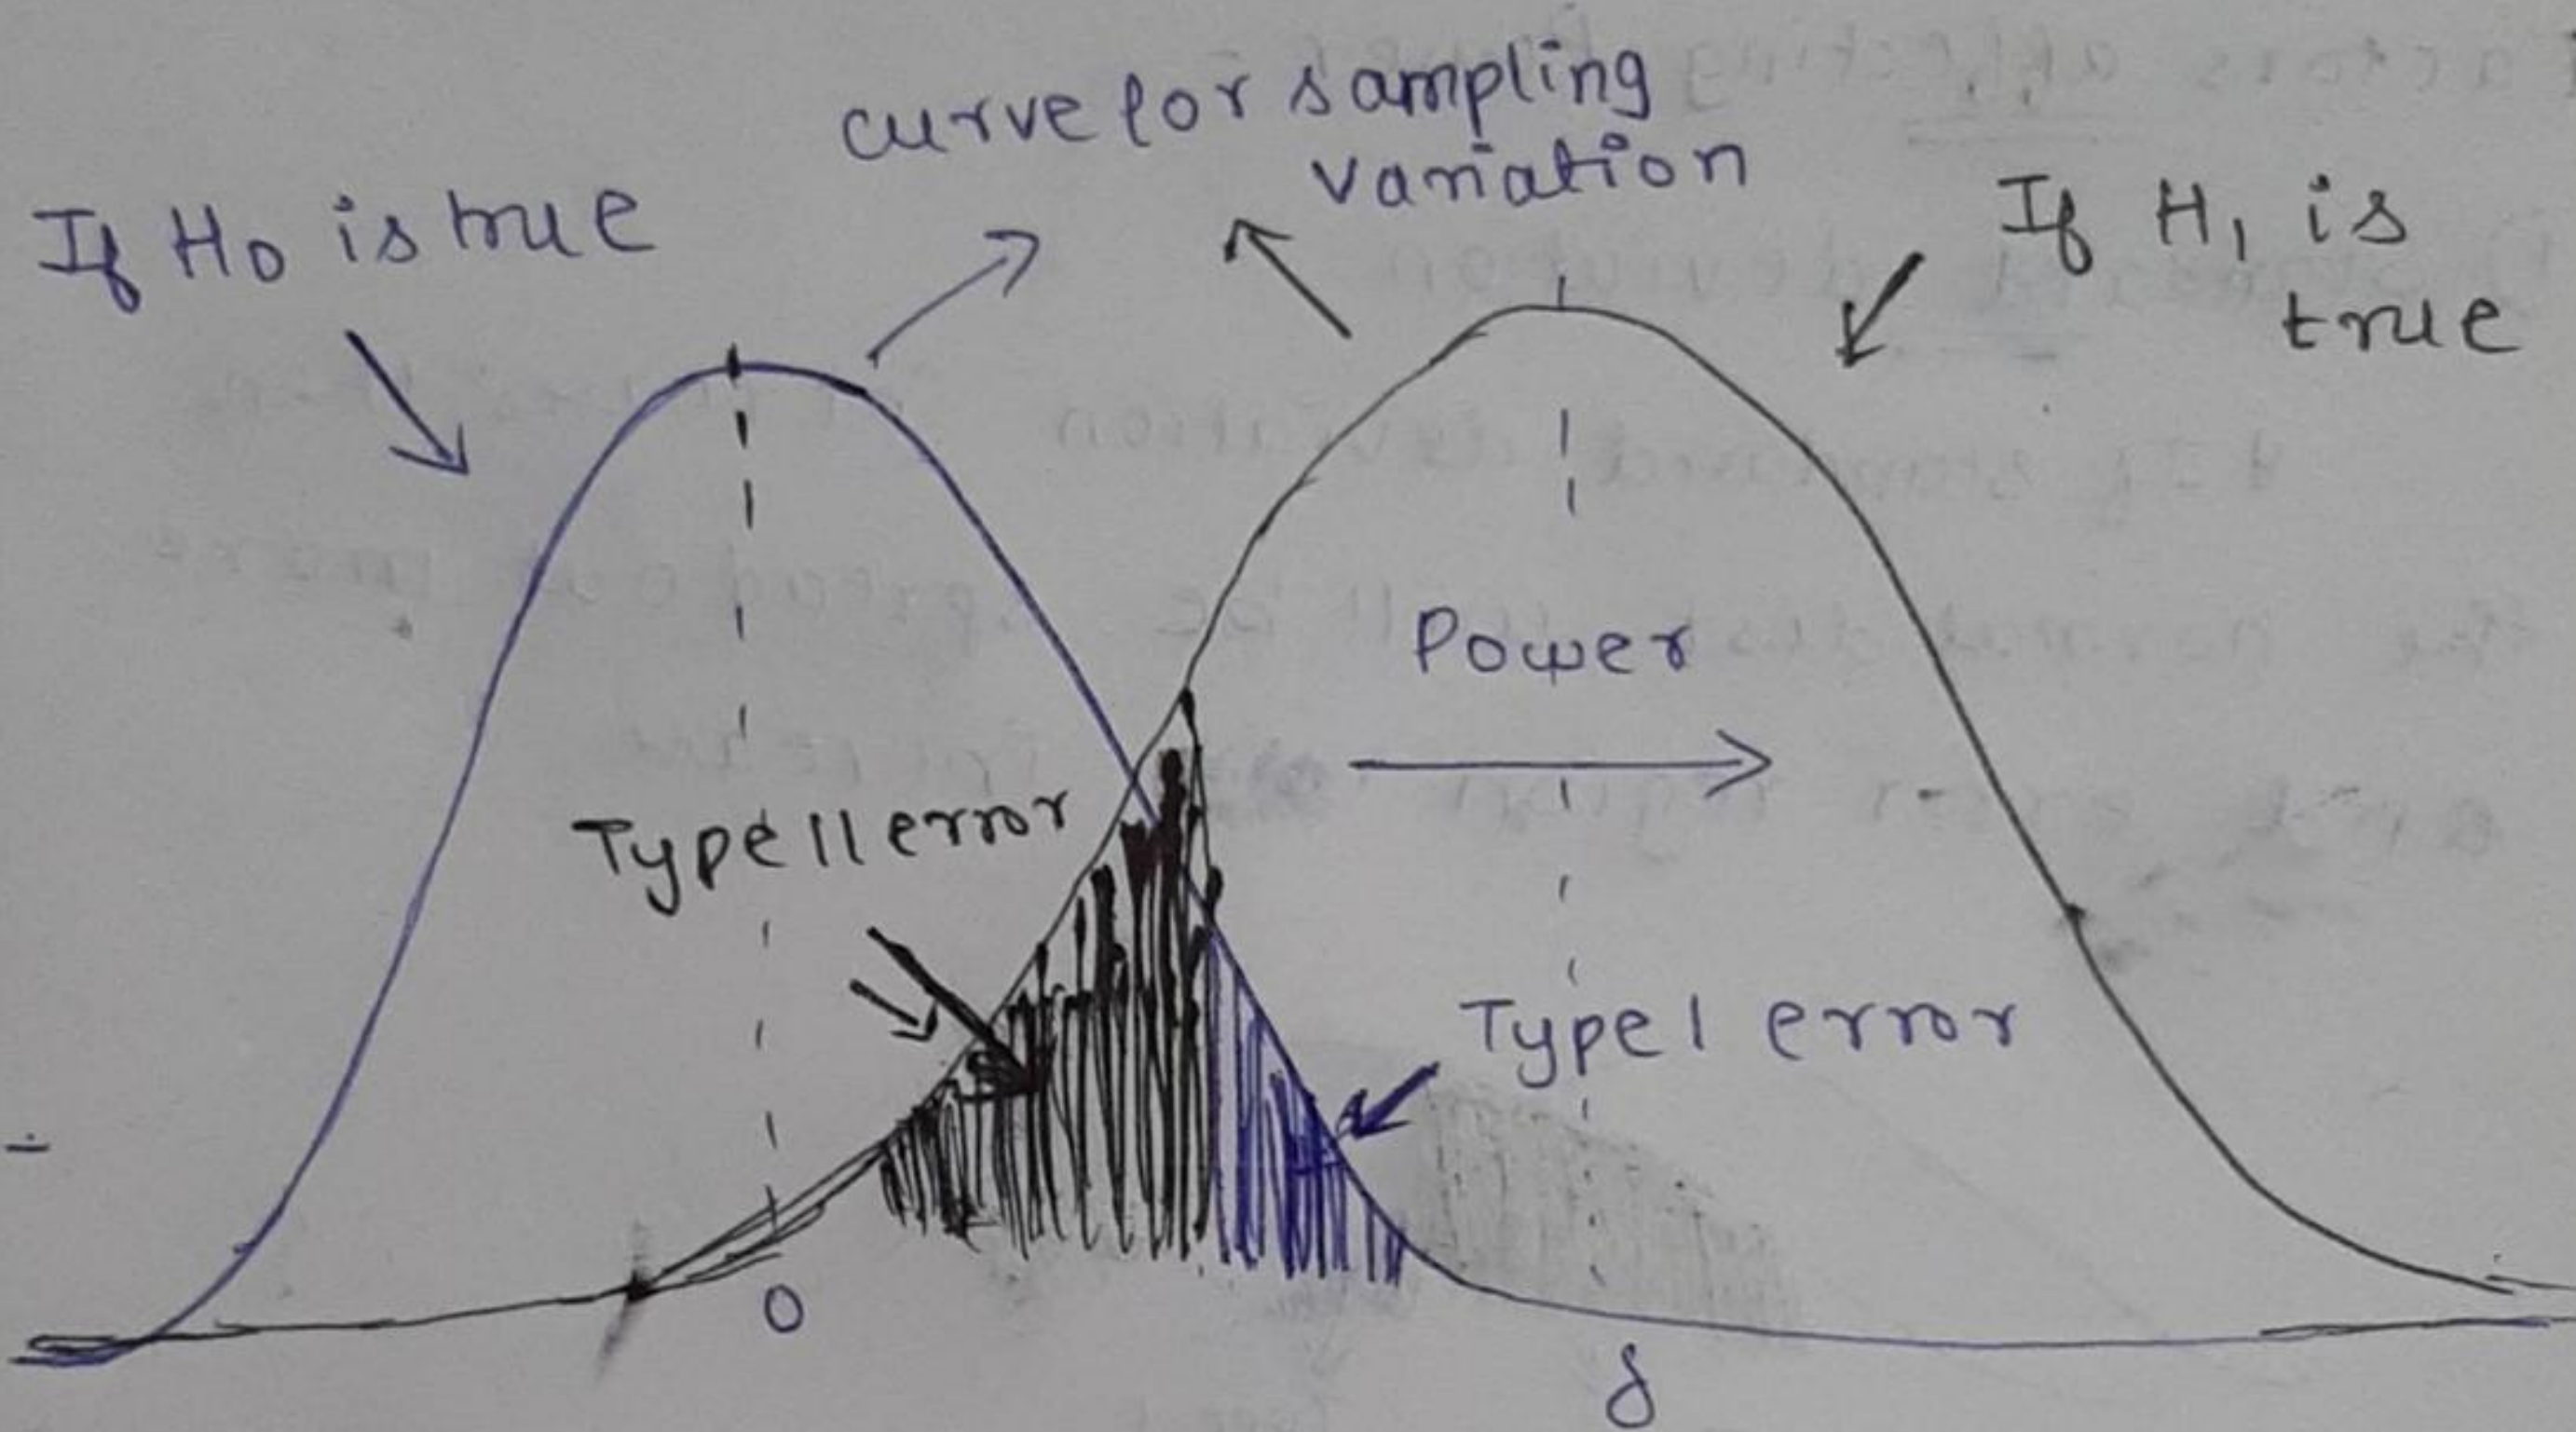 curve for sampling
variation
If H0 is true
If H1 is
true
Power
Type II error
Type I error
0
δ